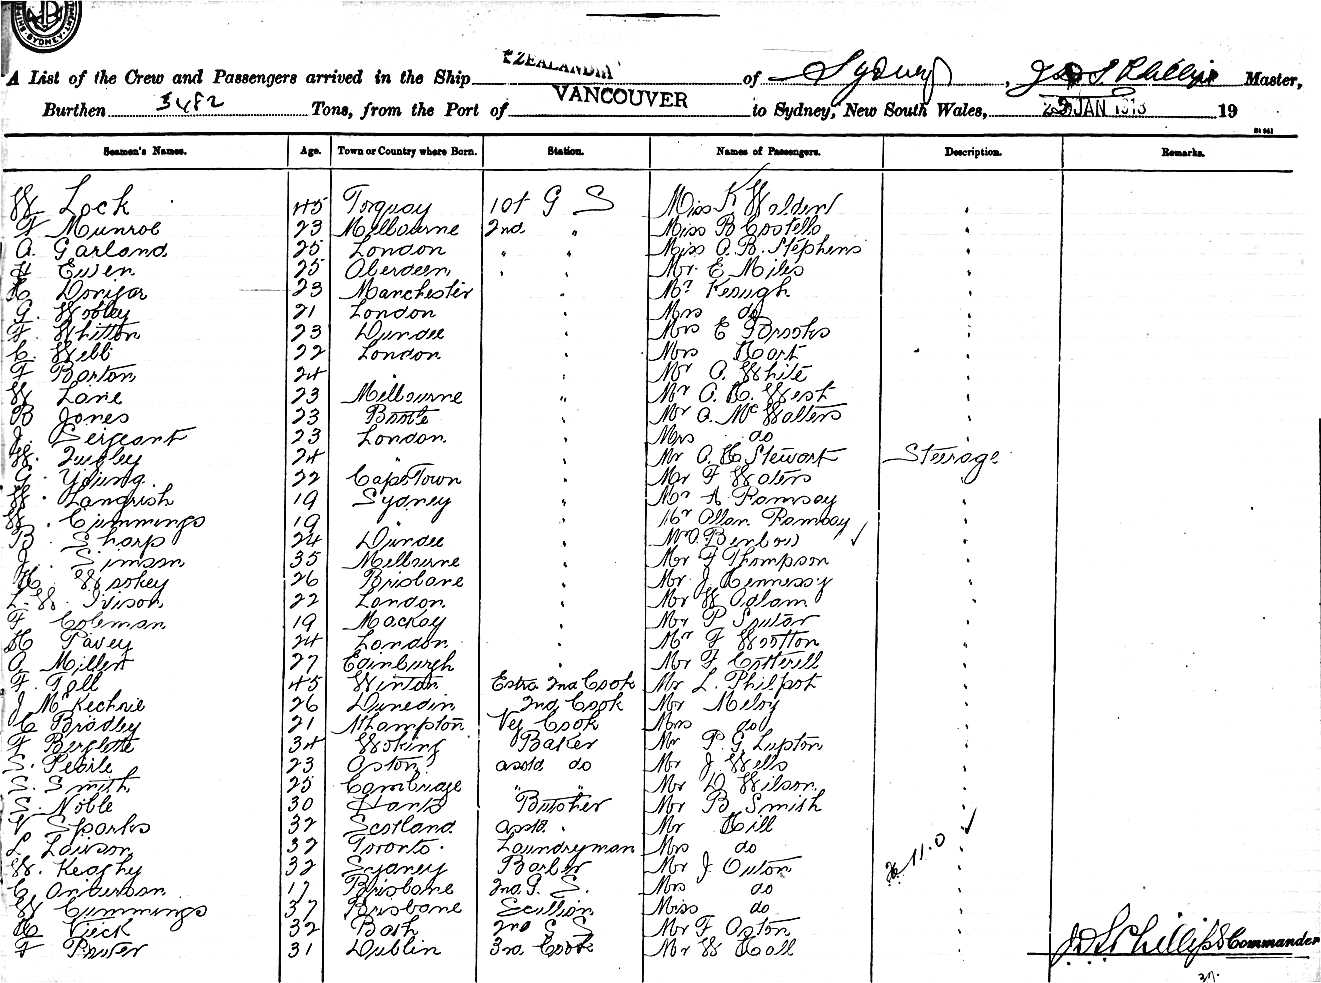 SYDNEY
A List of the Crew and Passengers arrived in the Ship ZEALANDIA of Sydney, J D S Phillips Master,
Burthen 3482 Tons, from the Port of VANCOUVER to Sydney, New South Wales, JAN 1913 19
Seamen's Names. Age. Town or Country where Born. Station. Names of Passengers. Description. Remarks.
W Lock 45 Torquay 1st G S Miss K Walden
F Munroe 23 Melbourne 2nd " Miss B Costello
A. Garland 25 London " " Miss A. B. Stephens
H Ewen 25 Aberdeen " " Mr. E Miles
23 Manchester " Mr Keough
G. Wooley 21 London " Mrs do
F Whitton 23 Dundee " Mrs E Brooks
C. Webb 22 London " Mrs Hart
F Barton 24 " " Mr A. White
W Lane 23 Melbourne " Mr A. H. West
B Jones 23 " Mr A. McWalters
J. Sergeant 23 London " Mrs do
W. Quigley 24 " " Mr A H Stewart Steerage
G. Young 22 Cape Town " Mr F Waters
W. Langrish 19 Sydney " Mr A Ramsay
W. Cummings 19 " Mr Allan Ramsay
B. Sharp 24 Dundee " Mr O. Benbow
J. Simson 35 Melbourne " Mr F Thompson
H. Wookey 26 Brisbane " Mr J Hennessy
L. W. Ivison 22 London " Mr W Odlam
F Coleman 19 Mackay " Mr P Soutar
H Pavey 24 London " Mr F Wootton
A Millett 27 Edinburgh " Mr F. Cotterill
F. Toll 45 Winton Extra 2nd Cook Mr L. Philpot
J McKechnie 26 Dunedin 2nd Cook Mr Meloy
C Bradley 21 Nhampton Veg Cook Mrs do
F 34 Woking Baker Mr P. G. Lupton
S. 23 Aston asstd do Mr J Wells
S. Smith 25 Cambridge " " Mr D Wilson
S. Noble 30 Hants Butcher Mr B Smith
V Sparks 32 Scotland asstd " Mr Hill
L 32 Toronto Laundryman Mrs do
W. Keachy 32 Sydney Barber Mr J Outon 11.0
C Anderson 17 Brisbane 2nd G. S. Mrs do
W Cummings 37 Brisbane Scullion Miss do
H Vick 32 Bath 2nd S S Mr F Aston
F Power 31 Dublin 3rd Cook Mr W Hall
J D S Phillips Commander
37.